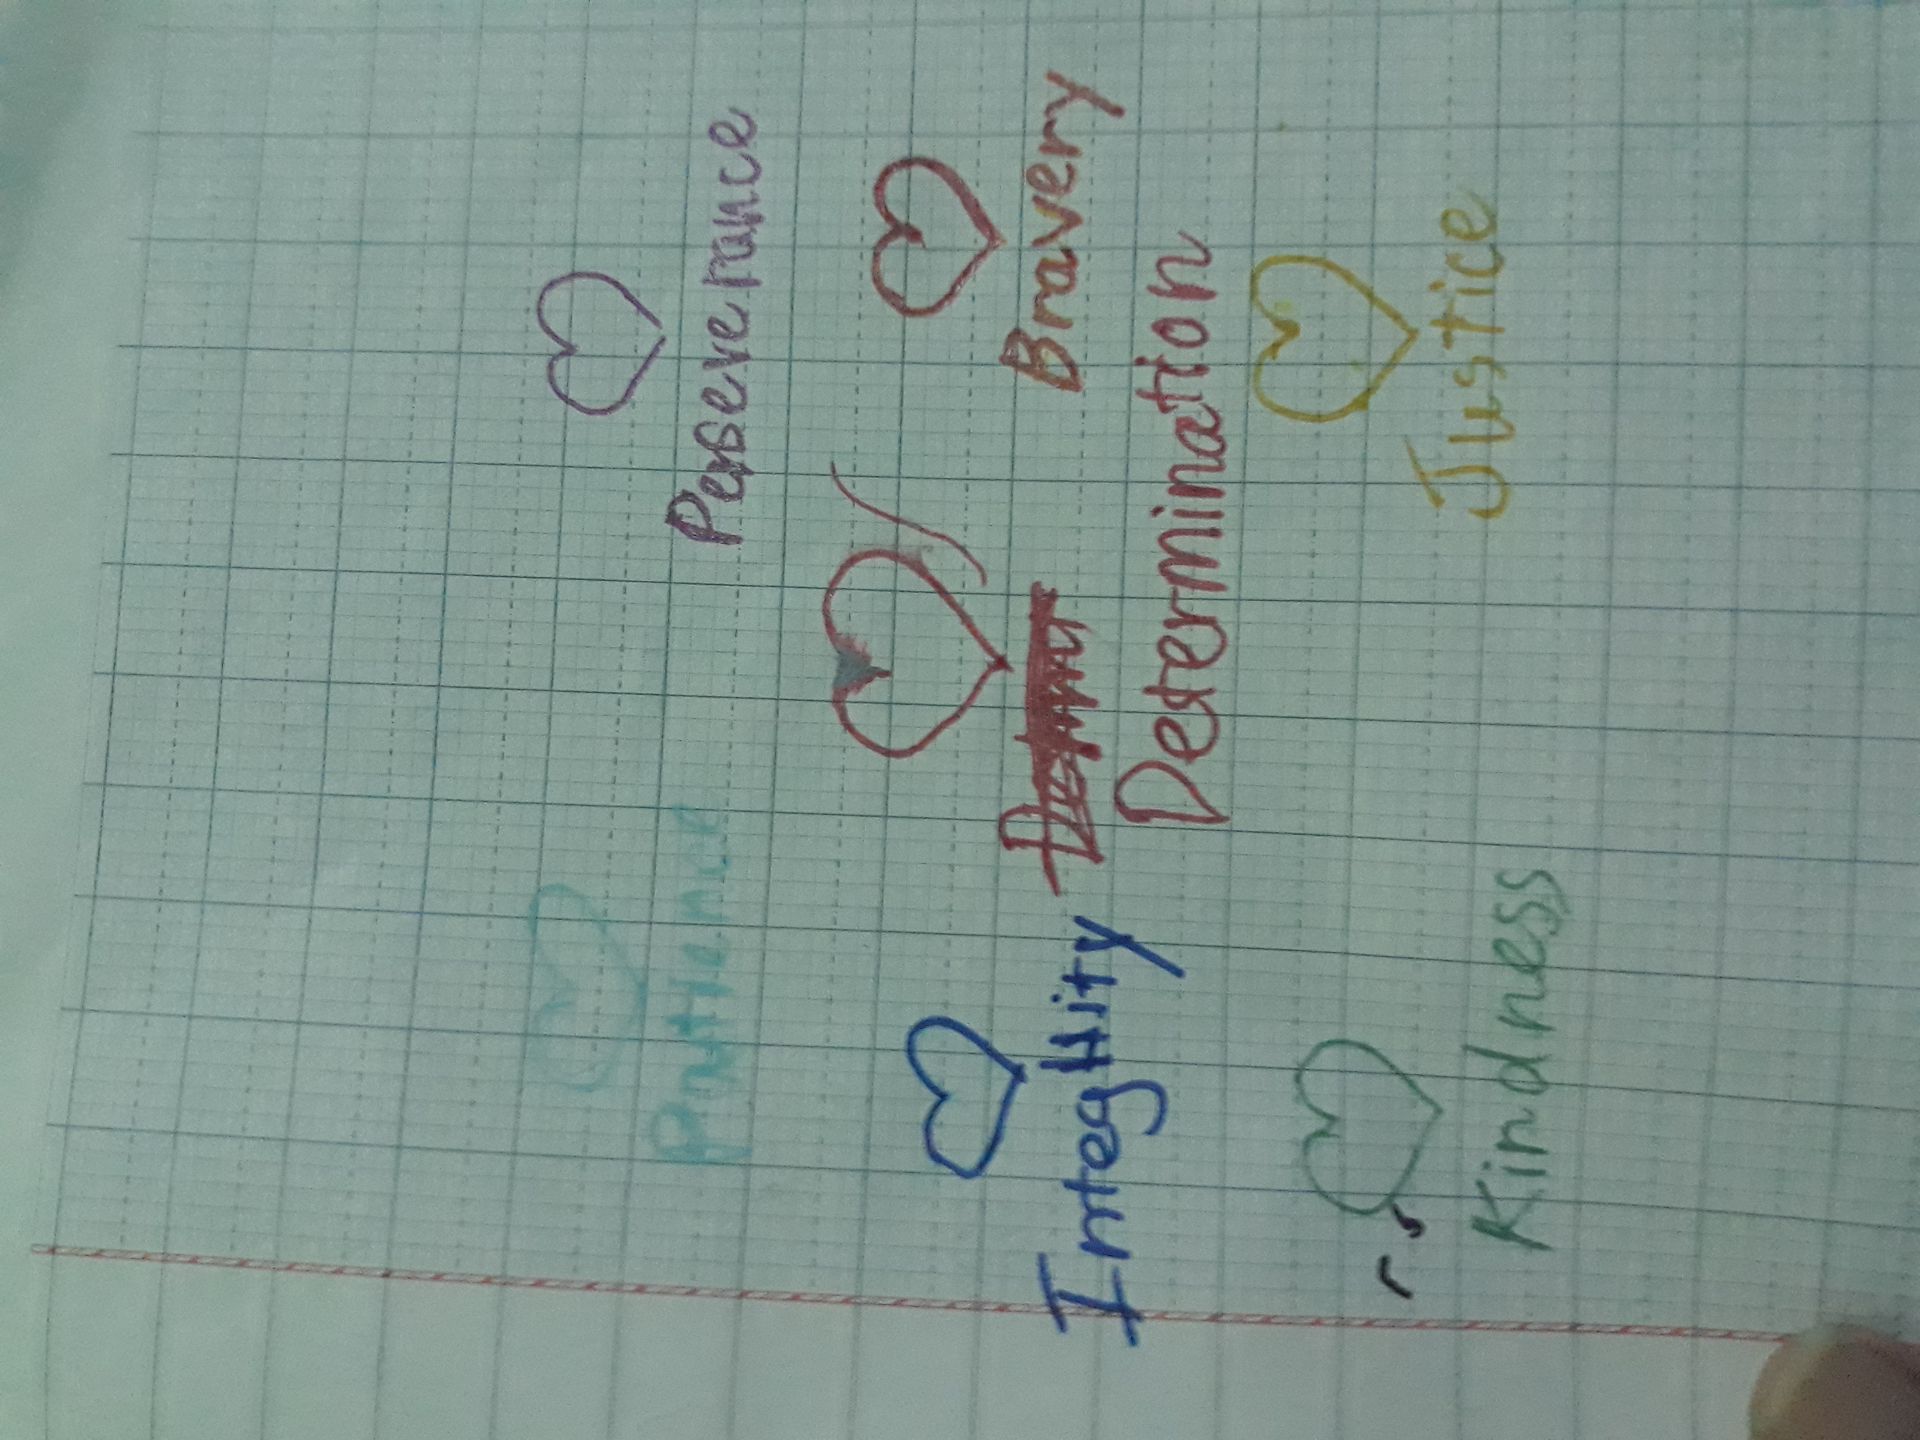 Patience
Perseverance
Integrity
Bravery
Determination
Kindness
Justice